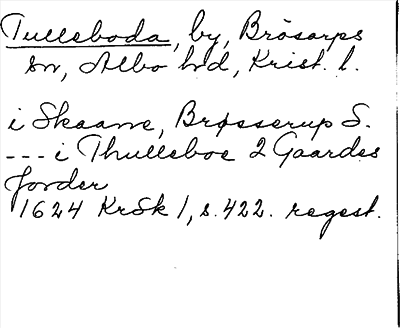 Tulleboda, by, Brösarps
sn, Albo hd, Krist. l.
i Skaane, Brøsserup S.
--- i Thulleboe 2 Gaardes
Jorder
1624 KrSk 1, s. 422. regest.